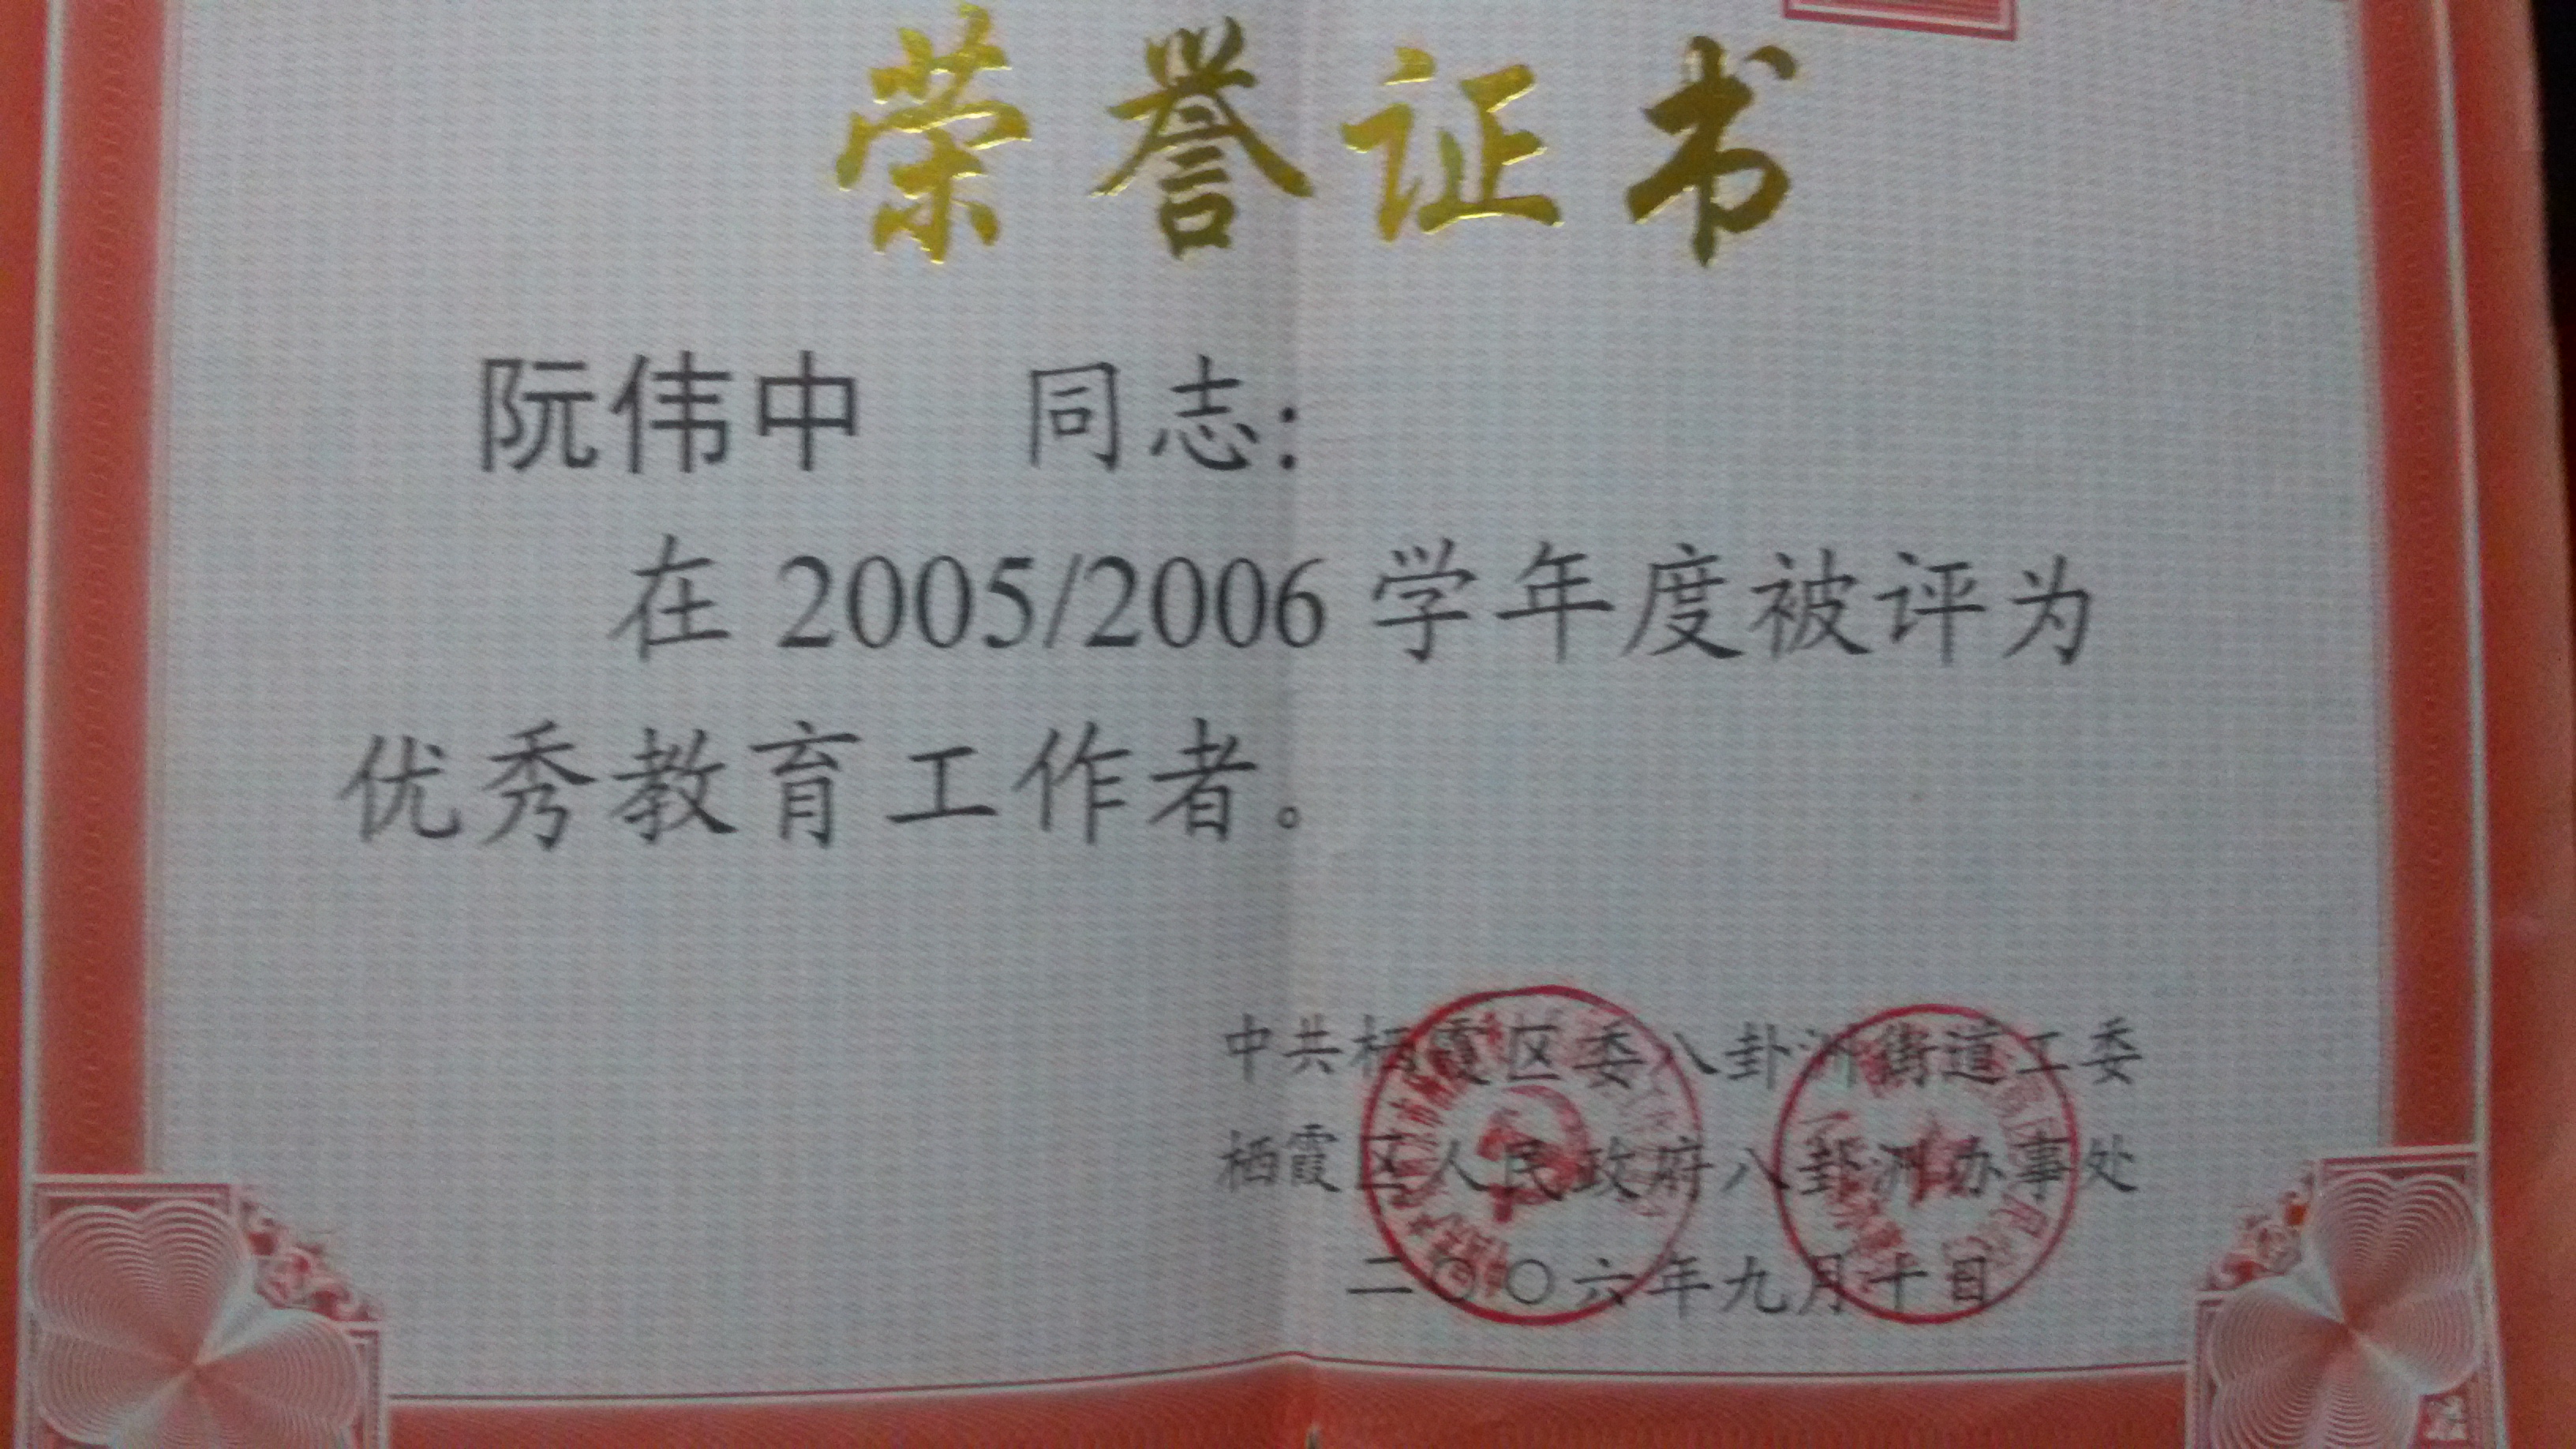 荣誉证书
阮伟中 同志:
在 2005/2006 学年度被评为
优秀教育工作者。
中共栖霞区委八卦洲街道工委
栖霞区人民政府八卦洲办事处
二〇〇六年九月十日